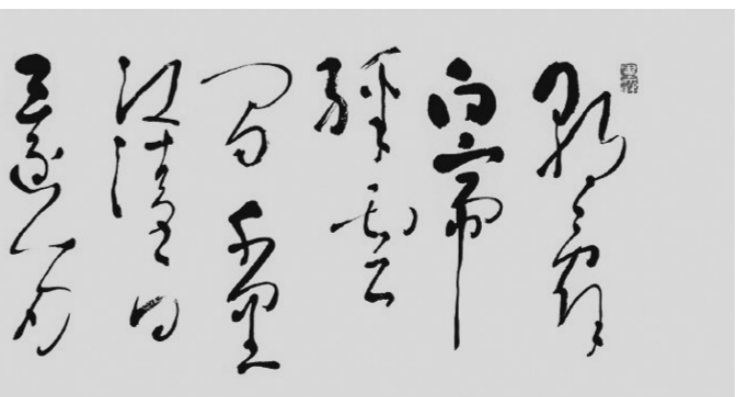 朝辭
白帝
綵雲
間千里
江陵一日
還